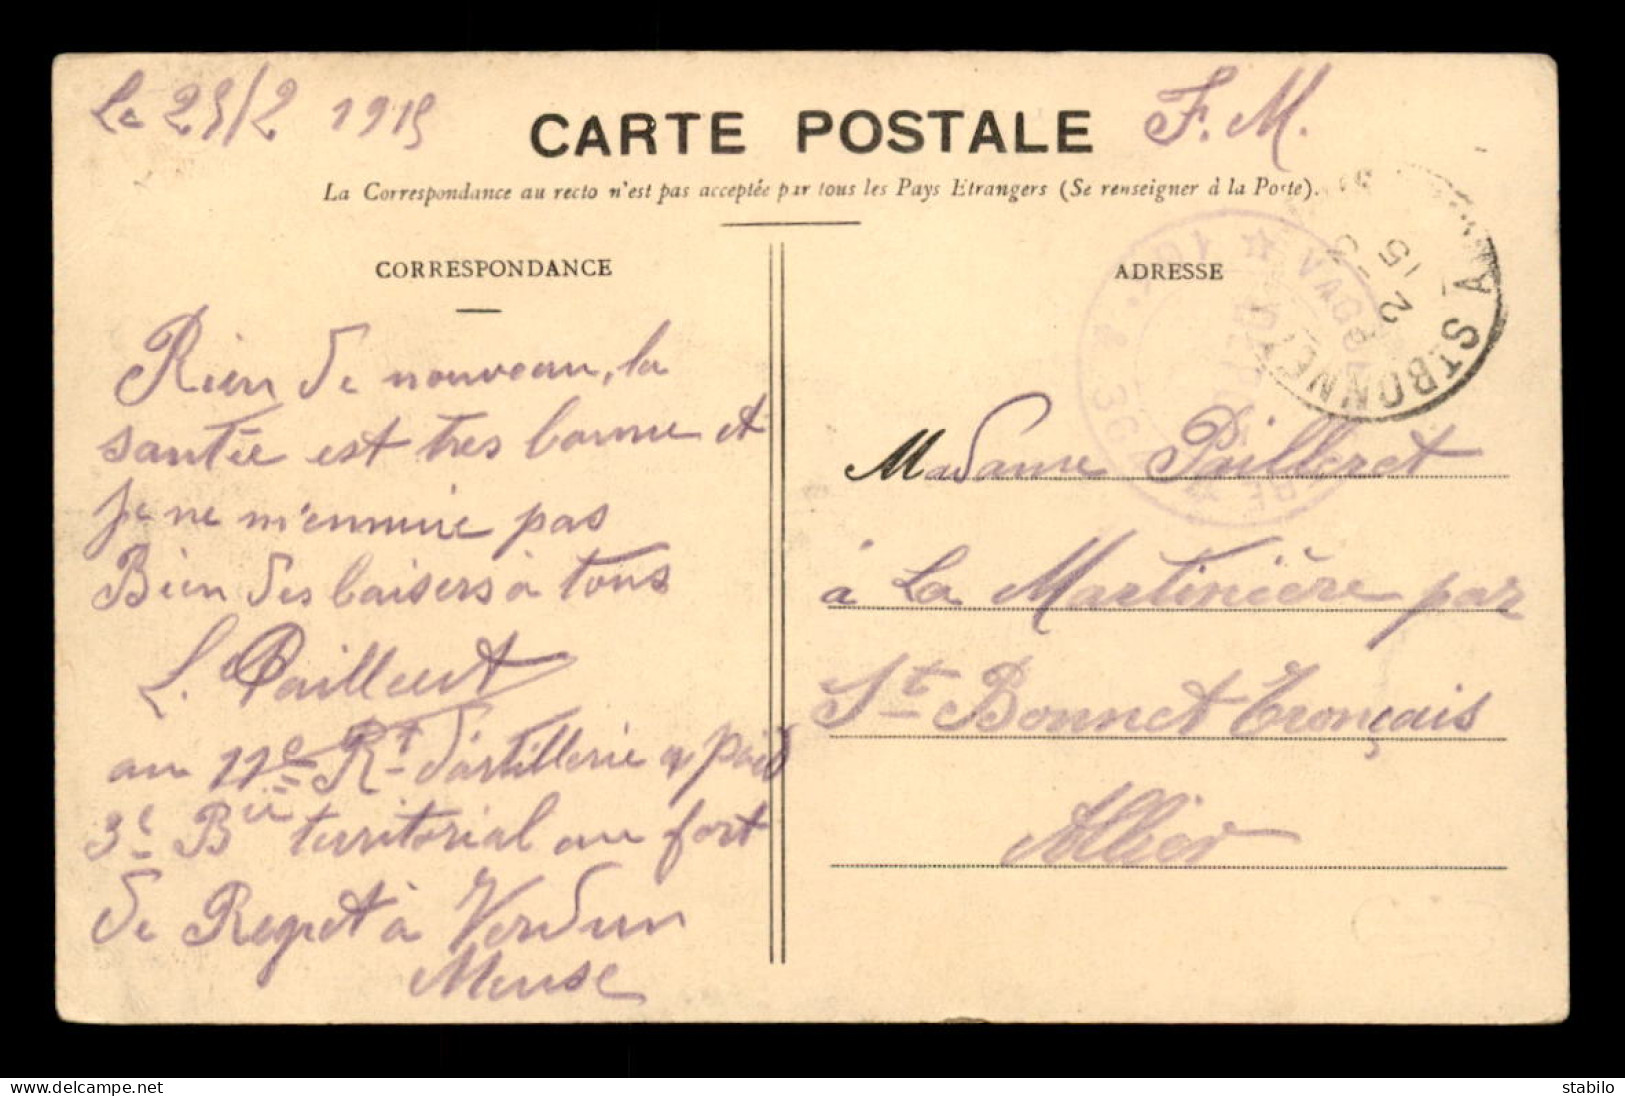 Le 25/2 1915
CARTE POSTALE
F. M.
La Correspondance au recto n'est pas acceptée par tous les Pays Etrangers (Se renseigner à la Poste).
CORRESPONDANCE
Rien de nouveau, la
santée est tres bonne et
je ne m'ennuie pas
Bien des baisers à tous
L. Pailleret
au 11e Rt d'artillerie a pied
3e Bie territorial au fort
de Regret à Verdun
Meuse
ADRESSE
Madame Pailleret
à La Martinière par
St Bonnet Tronçais
Allier
ST BONNET
15
2
36
VAGUE
stabilo